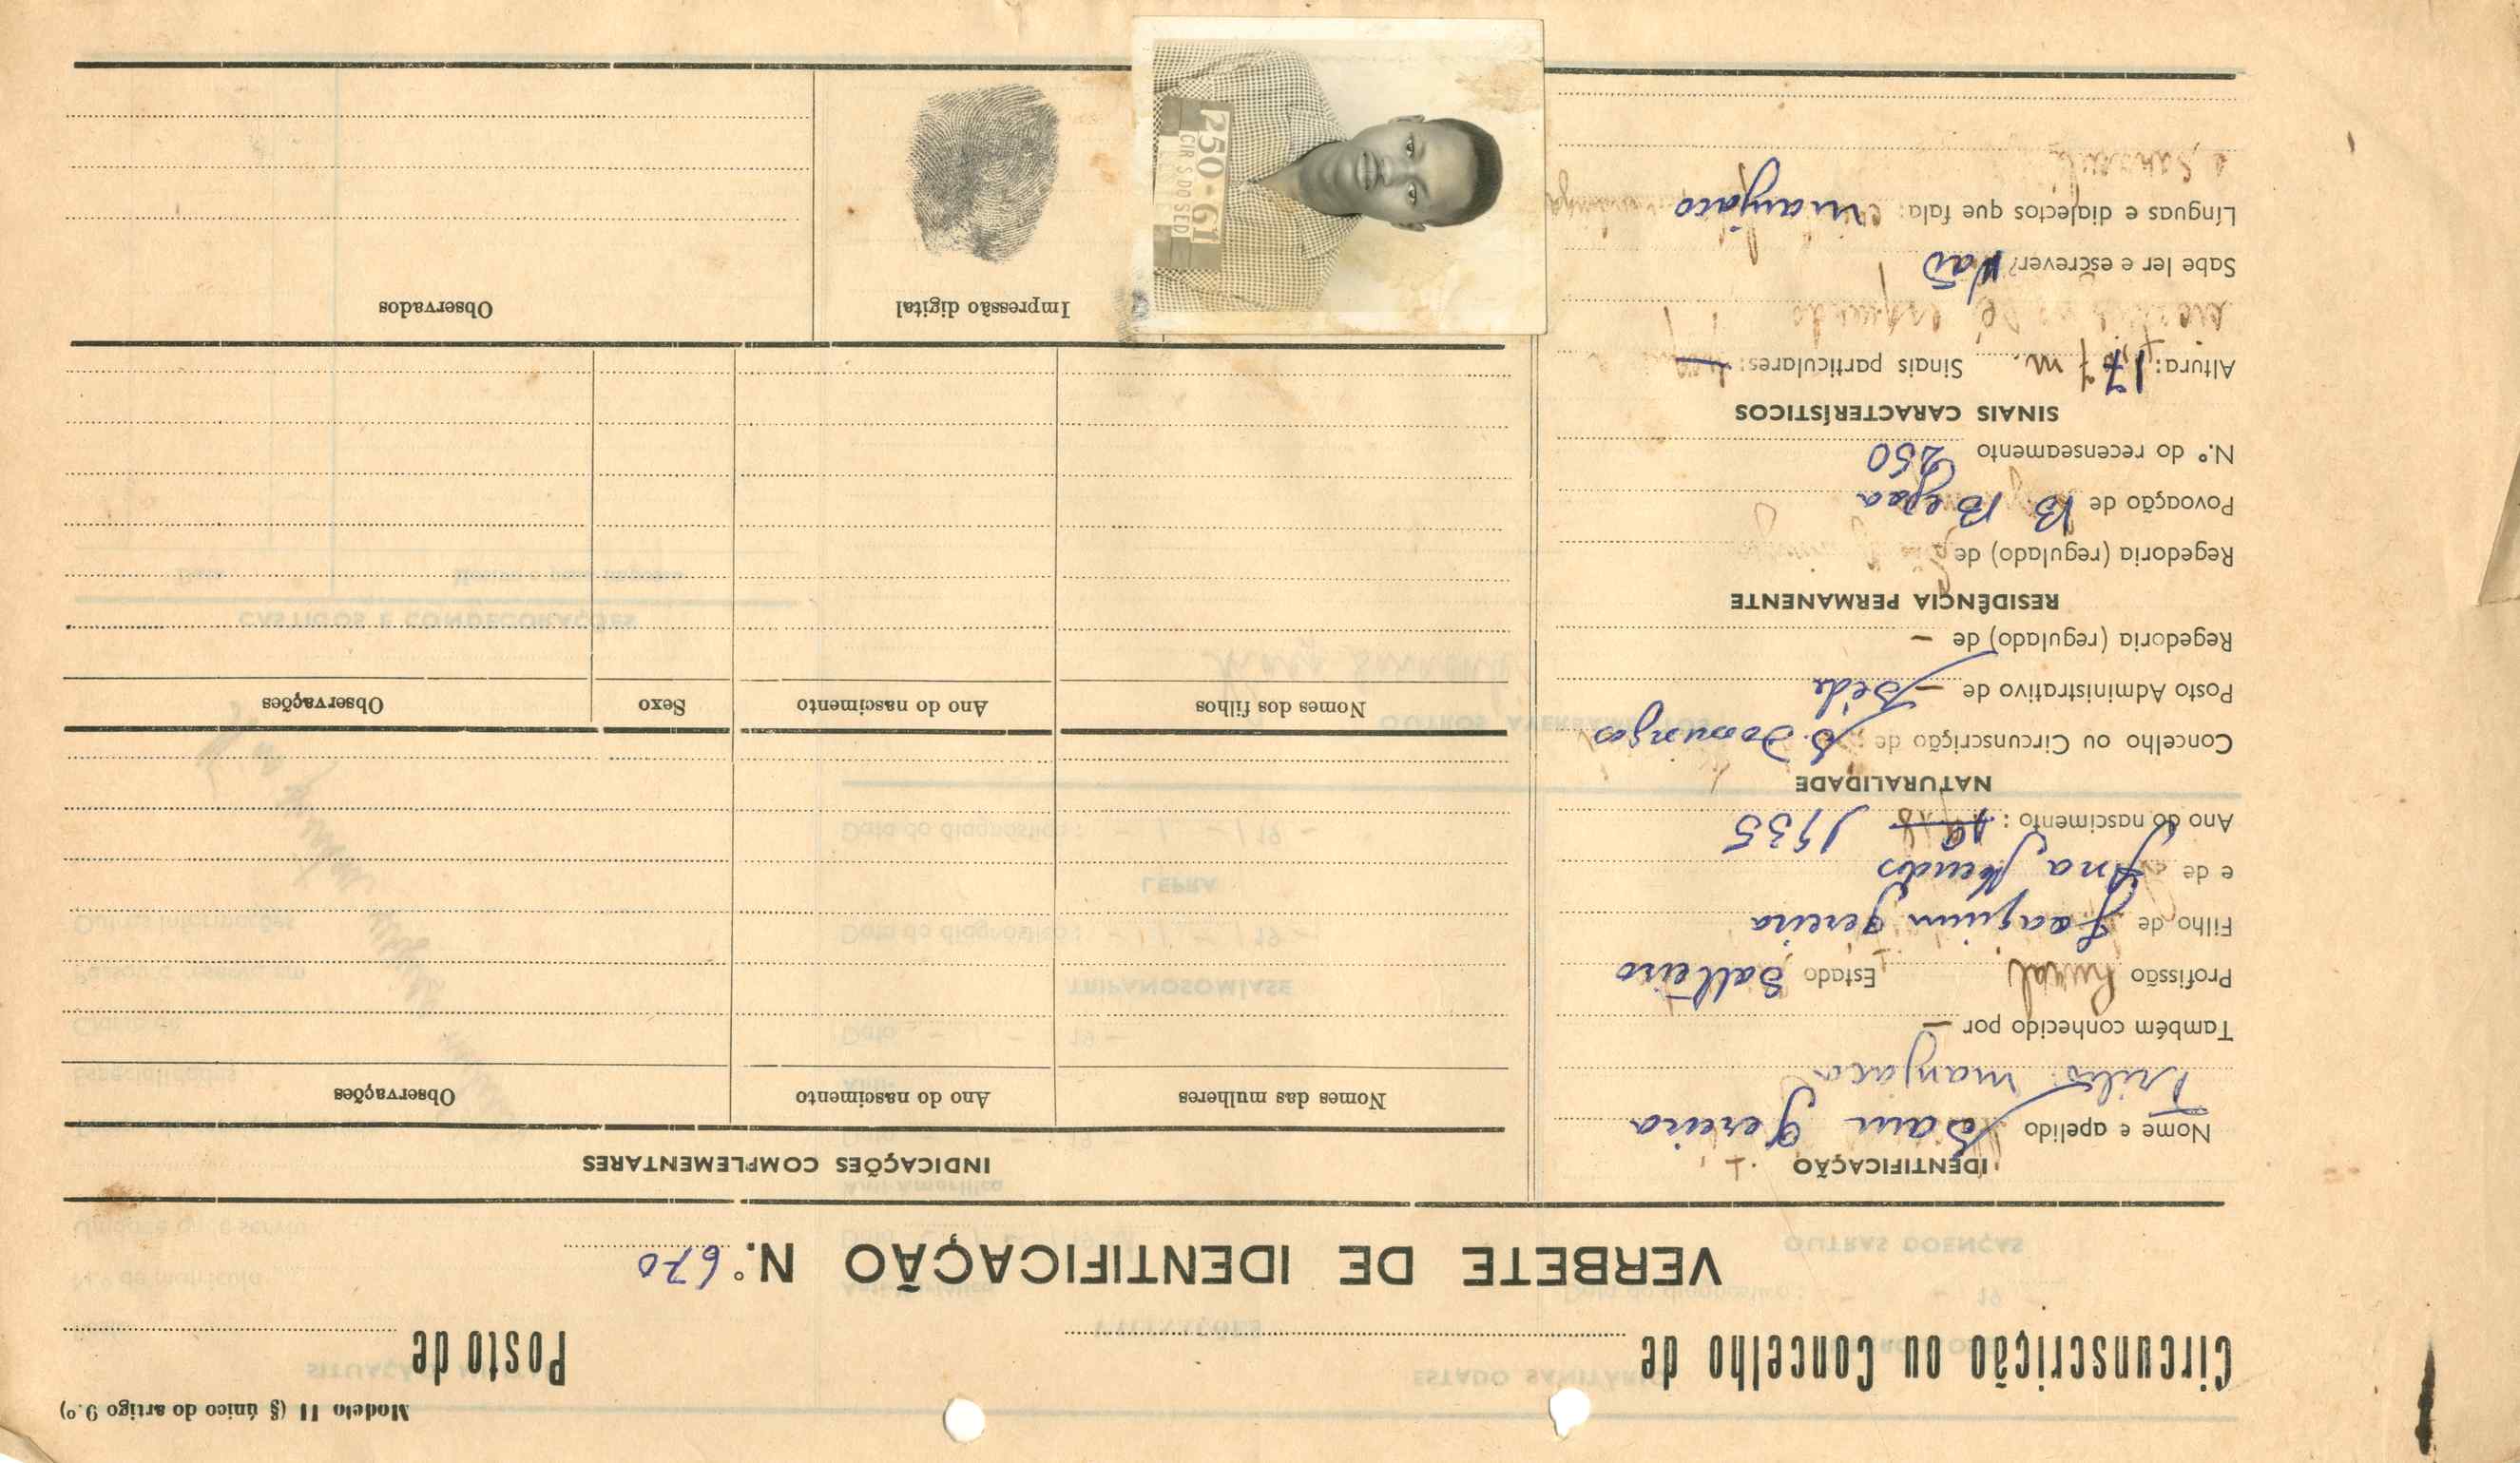 Modelo 11 (§ único do artigo 9.º)
Circunscrição ou Concelho de
Posto de
VERBETE DE IDENTIFICAÇÃO N.º 670
IDENTIFICAÇÃO
Nome e apelido Sam Pereira
Tribo: manjaca
Também conhecido por —
Profissão Rural Estado Salteiro
Filho de Joaquim Pereira
e de Ana Mendes
Ano do nascimento: 1935
NATURALIDADE
Concelho ou Circunscrição de S. Domingos
Posto Administrativo de — Séde
Regedoria (regulado) de —
RESIDÊNCIA PERMANENTE
Regedoria (regulado) de
Povoação de B. Begaa
N.º do recenseamento 250
SINAIS CARACTERÍSTICOS
Altura: 177 m. Sinais particulares: —
Sabe ler e escrever? Não
Línguas e dialectos que fala: manjaco
INDICAÇÕES COMPLEMENTARES
Nomes das mulheres
Ano do nascimento
Observações
Nomes dos filhos
Ano do nascimento
Sexo
Observações
Impressão digital
Observados
250-61
CIR SDO SED